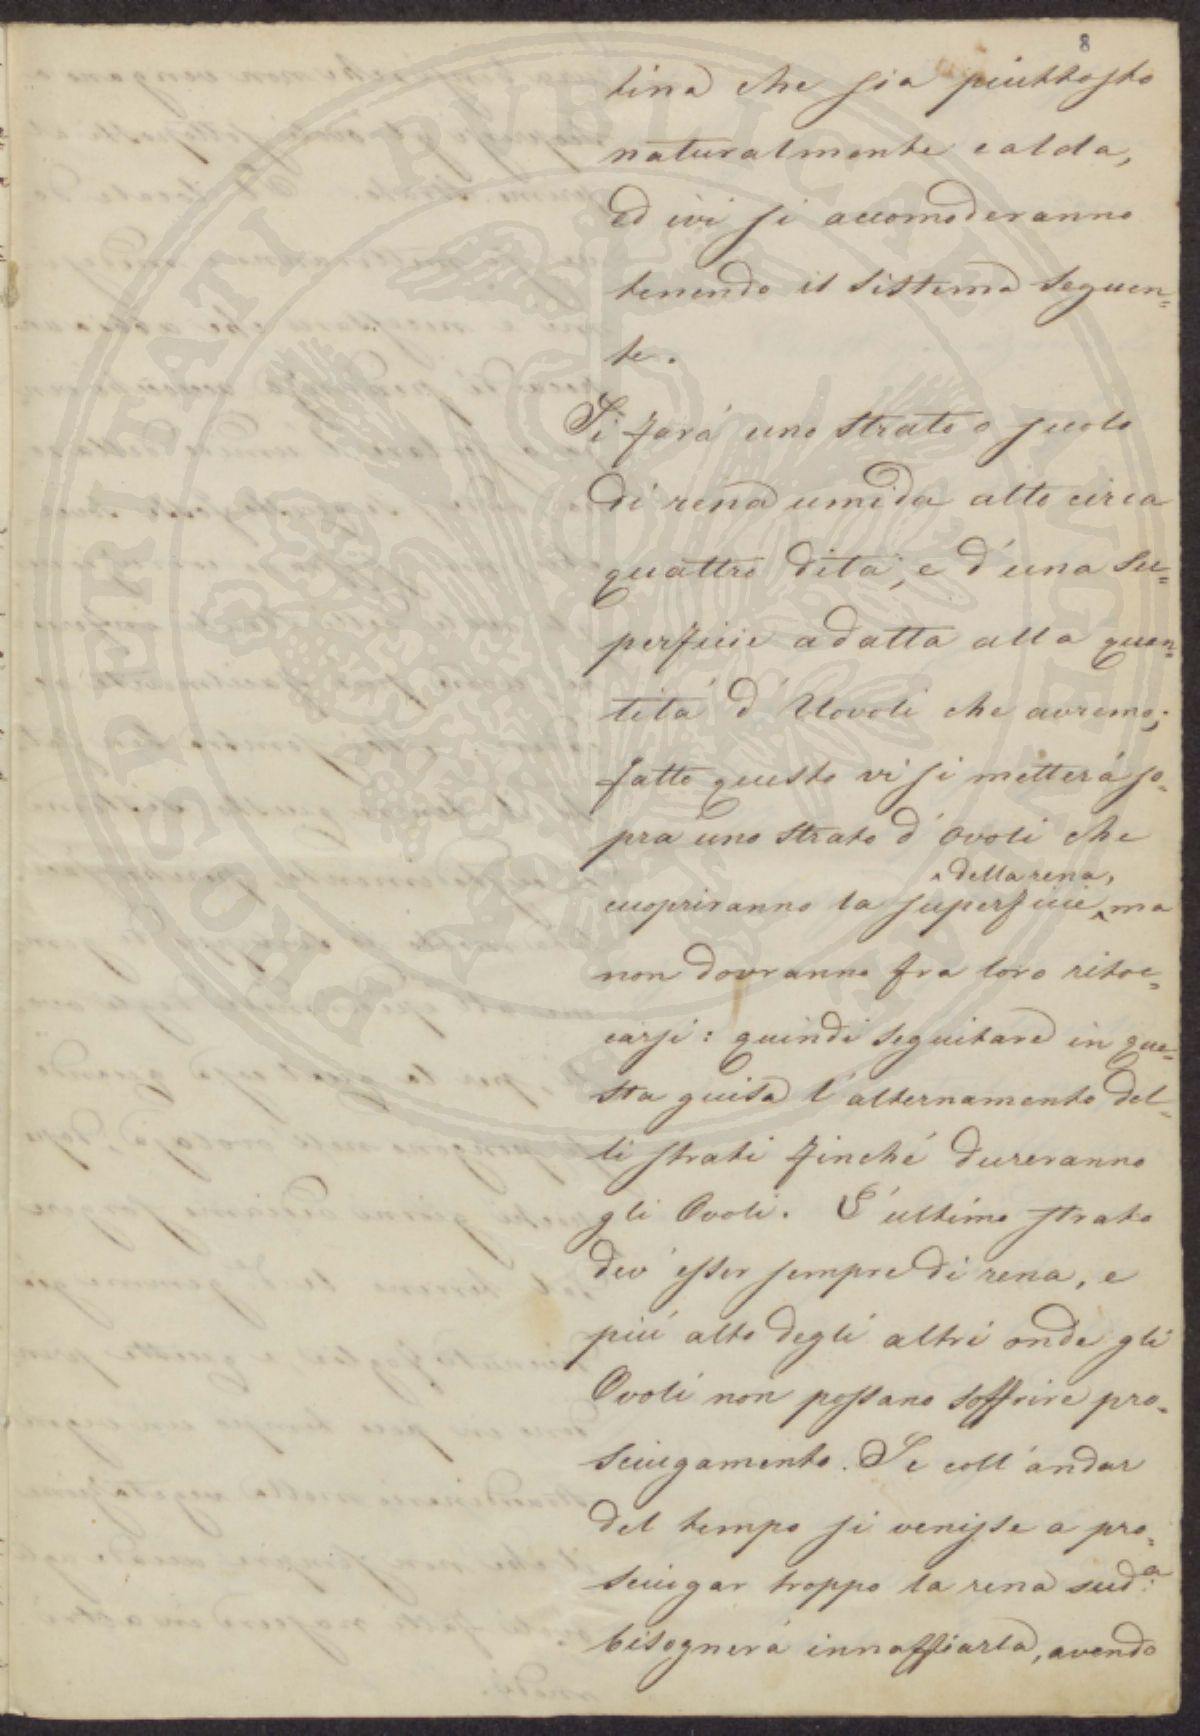 8
tina che sia piuttosto
naturalmente calda,
ed ivi si accomoderanno
tenendo il sistema seguen=
te.
Si fará uno strato o suolo
di rena umida alto circa
quattro dita, e d'una su=
perficie adatta alla quan=
titá d'Uovoli che avremo;
fatto questo vi si metterá so=
pra uno strato d'ovoli che
cuopriranno la superficie ^della rena, ma
non dovranno fra loro ritoc=
carsi: quindi seguitare in que=
sta guisa l'alternamento del=
li strati finché dureranno
gli Ovoli. L'ultimo strato
dev'esser sempre di rena, e
piú alto degli altri onde gli
Ovoli non possano soffrire pro=
sciugamento. Se coll'andar
del tempo si venisse a pro=
sciugar troppo la rena sud.a
bisognerá innaffiarla, avendo
PROSPERITATI PUBLICAE AUGENDAE